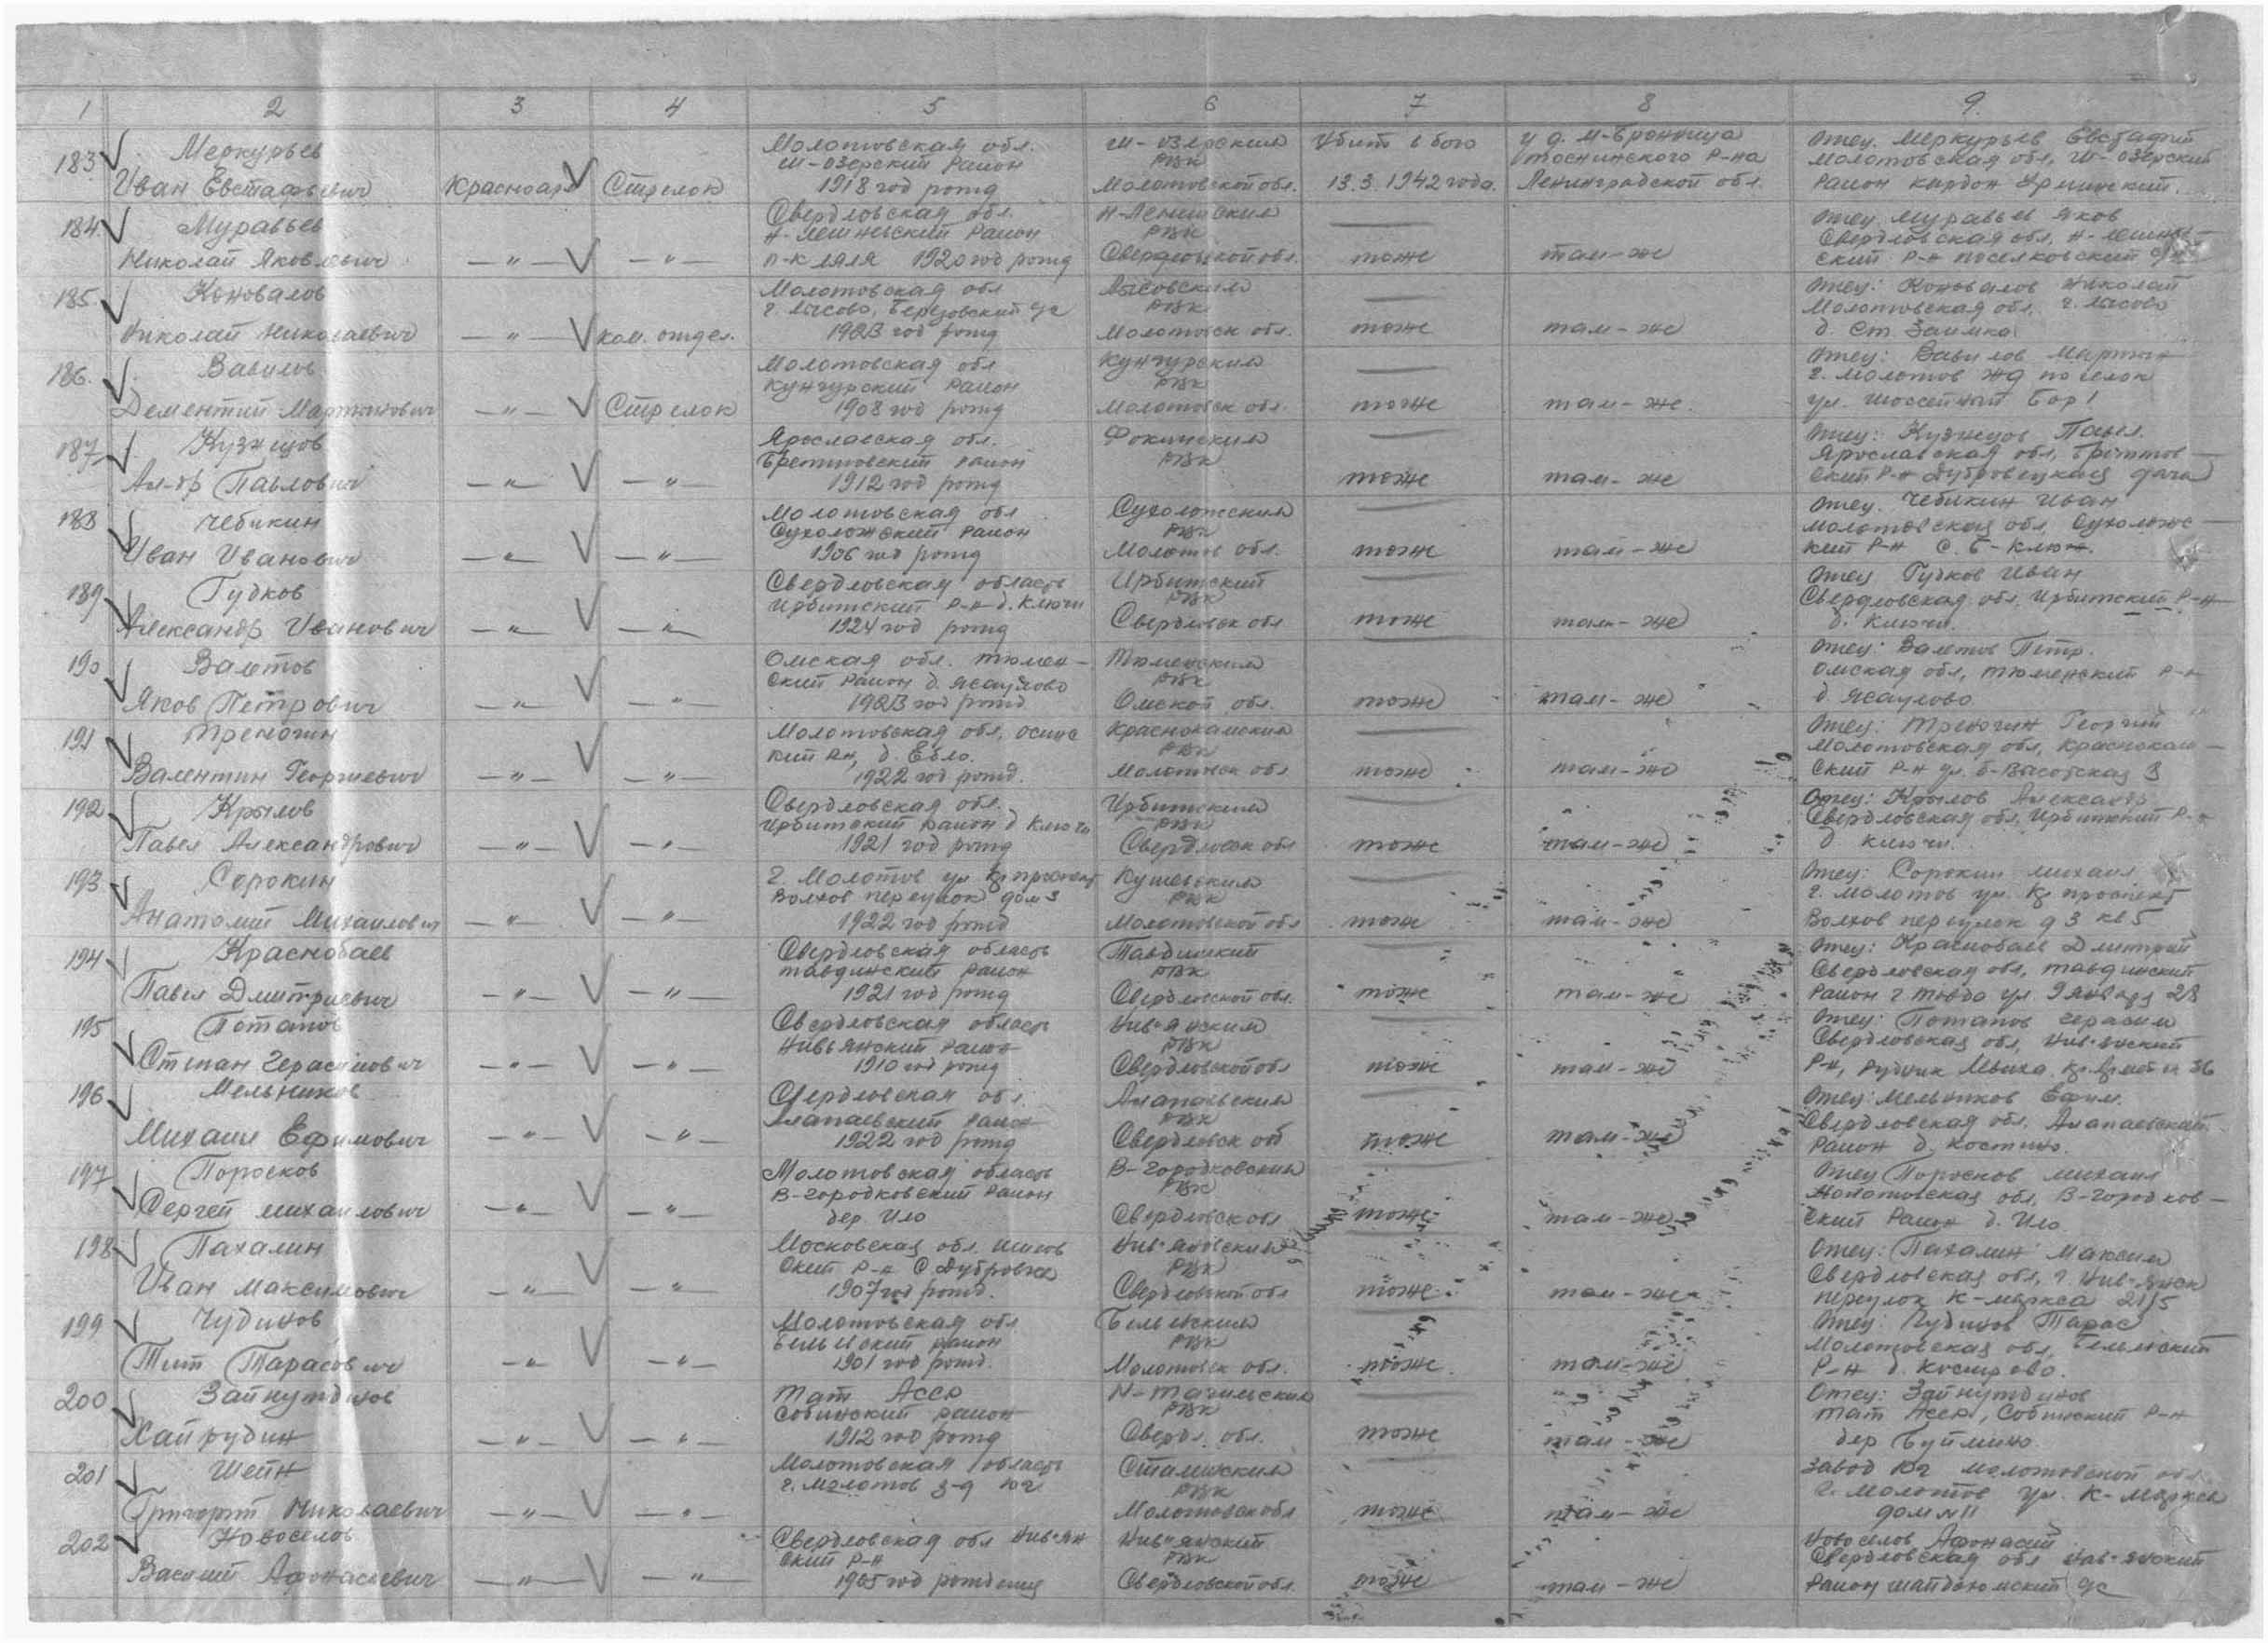 1 2 3 4 5 6 7 8 9.
183 Меркурьев Молотовская обл. Ш-озерский Убит в бою у д. М-Бронница Отец. Меркурьев Евстафий
Ш-озерский Район РВК Тоснинского Р-на Молотовская обл, Ш-озерский
Иван Евстафьевич Красноар Стрелок 1918 год рожд Молотовской обл. 13.3.1942 года. Ленинградской обл. Район кордон
184 Муравьев Свердловская обл. РВК Отец. Муравьев Яков
Район Свердловская обл,
Николай Яковлевич —"— —"— п-к Ляля 1920 год рожд Свердловской обл. тоже там-же ский Р-н
185 Коновалов Молотовская обл Лысовским Отец: Коновалов Николай
г. Лысово, Березовский РВК Молотовская обл, г. Лысово
Николай Николаевич —"— ком. отдел. 1923 год рожд Молотовск обл. тоже там-же д. Ст. Заимка
186. Вавилов Молотовская обл Кунгурским Отец: Вавилов Мартын
Кунгурский Район РВК г. Молотов жд поселок
Дементий Мартынович —"— Стрелок 1908 год рожд Молотовск обл. тоже там-же. ул.
187 Кузнецов Ярославская обл. Фокинским Отец: Кузнецов Павел.
Район РВК Ярославская обл,
Ал-др Павлович —"— —"— 1912 год рожд тоже там-же ский Р-н дача
188 Чебыкин Молотовская обл Сухоложским Отец. Чебыкин Иван
Сухоложский Район РВК Молотовская обл, Сухоложс-
Иван Иванович —"— —"— 1906 год рожд Молотов обл. тоже там-же кий Р-н С.
189 Гудков Свердловская область Ирбитский Отец Гудков Иван
Ирбитский Р-н д. Ключи РВК Свердловская обл, Ирбитский Р-н
Александр Иванович —"— —"— 1924 год рожд Свердловск обл тоже там-же д. Ключи.
190 Валетов Омская обл. Тюмен- Тюменским Отец: Валетов Петр.
ский Район д. Ясаулово РВК Омская обл, Тюменский Р-н
Яков Петрович —"— —"— 1923 год рожд Омской обл. тоже там-же д. Ясаулово
191 Треногин Молотовская обл, Краснокамским Отец: Треногин Георгий
РВК Молотовская обл, Краснокам-
Валентин Георгиевич —"— —"— 1922 год рожд. Молотовск обл тоже там-же ский Р-н ул. Б-Высотская 3
192 Крылов Свердловская обл. Ирбитским Отец: Крылов Александр
Ирбитский Район д Ключи РВК Свердловская обл, Ирбитский Р-н
Павел Александрович —"— —"— 1921 год рожд Свердловск обл тоже там-же д Ключи.
193 Сорокин г. Молотов ул Кр проспект РВК Отец: Сорокин Михаил
Волхов переулок дом 3 г. Молотов ул. Кр проспект
Анатолий Михаилович —"— —"— 1922 год рожд Молотовской обл тоже там-же Волхов переулок д 3 кв 5
194 Краснобаев Свердловская область Тавдинкий Отец: Краснобаев Дмитрий
Тавдинский Район РВК Свердловская обл, Тавдинский
Павел Дмитриевич —"— —"— 1921 год рожд Свердловской обл. тоже там-же Район г. Тавда ул 9 января 28
195 Потапов Свердловская область Нивьянским Отец: Потапов Герасим
Нивьянский Район РВК Свердловская обл, Нивьянский
Степан Герасимович —"— —"— 1910 год рожд Свердловской обл тоже там-же Р-н, рудник Левиха
196 Мельников Свердловская обл. Алапаевским Отец: Мельников Ефим.
Алапаевский Район РВК Свердловская обл. Алапаевский
Михаил Ефимович —"— —"— 1922 год рожд Свердловск обл тоже там-же Район д. Костино.
197 Поросков Молотовская область В-Городковским Отец Поросков Михаил
В-Городковский Район РВК Молотовская обл, В-Городков-
Сергей Михаилович —"— —"— дер. Ило Свердловск обл тоже там-же ский Район д. Ило
198 Пахалин Московская обл. Нивьяновским Отец: Пахалин Максим
ский Р-н С. Дубровка РВК Свердловская обл, г. Нивьянск
Иван Максимович —"— —"— 1907 год рожд. Свердловской обл тоже там-же переулок К-Маркса 21/5
199 Чудинов Молотовская обл РВК Отец: Чудинов Тарас
Район Молотовская обл,
Тит Тарасович —"— —"— 1901 год рожд. Молотовск обл. тоже там-же Р-н д.
200 Зайнутдинов Тат АССР Н-Тагильским Отец: Зайнутдинов
Собинский Район РВК Тат АССР, Собинский Р-н
Хайрудин —"— —"— 1912 год рожд Свердл. обл. тоже там-же дер
201 Шейн Молотовская область Сталинским Завод Юг Молотовской обл.
г. Молотов з-д Юг РВК г. Молотов ул. К-Маркса
Григорий Николаевич —"— —"— Молотовск обл тоже там-же дом №11
202 Новоселов Свердловская обл Нивьян Нивьянский Новоселов Афонасий
ский Р-н РВК Свердловская обл Нивьянский
Василий Афонасиевич —"— —"— 1905 год рождения Свердловской обл. тоже там-же Район